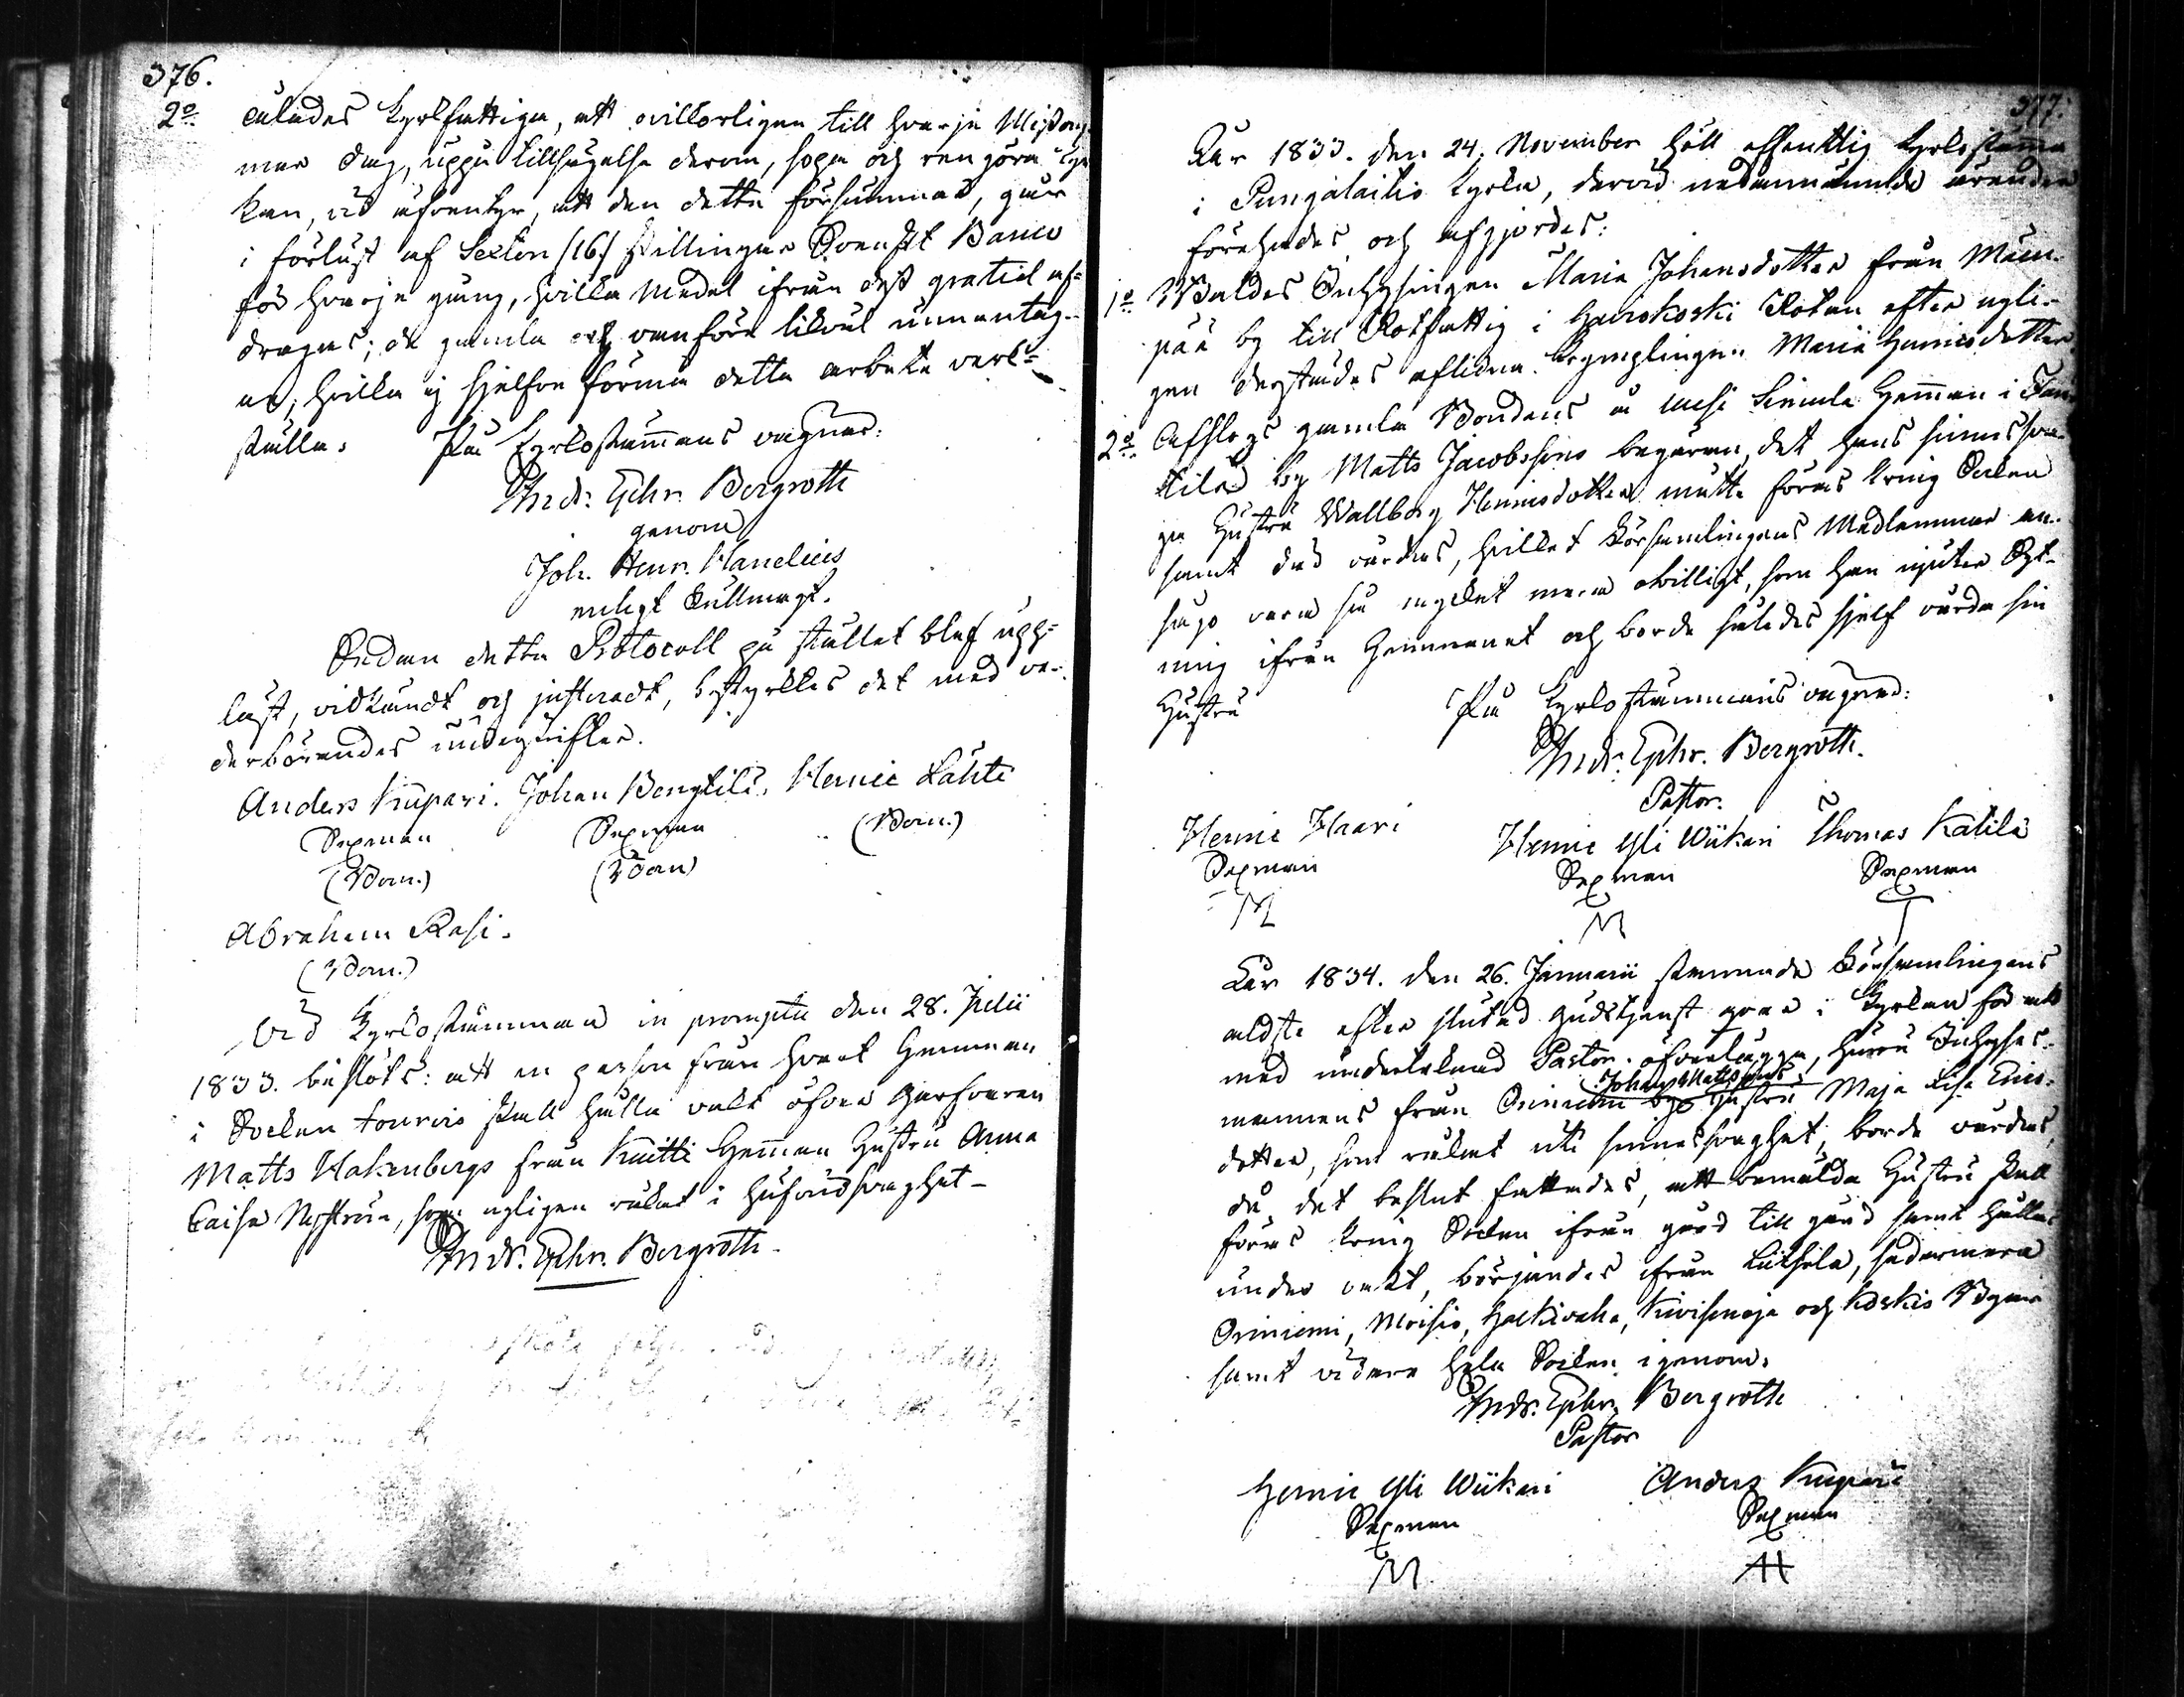 376.
2o ålades kyrkfattiga, att ovillkorligen till hvarje Missom-
mar dag, uppå tillsägelse derom, sopa och rengöra kyr
kan, vid äfventyr, att den detta försummar, går
i förlust af Sexton (16) skillingar Svenskt Banco
för hvarje gång, hvilka medel ifrån dess gratial af-
drages; de gamla och vanföra likväl unnantag-
ne, hvilka ej sjelfve förmå detta arbete verk-
ställa. På Kyrkostämmans vägnar:
Andr: Ephr. Bergroth
genom
Joh. Henr. Wanelius
enligt Fullmagt.
Sedan detta Protocoll på stället blef upp-
läst, vidkändt och justeradt, bestyrktes det med ve-
derbörandes underskrifter.
Anders Knupari. Johan Bengtilä. Hennic Lahti
Sexman Sexman (Bom.)
(Bom.) (Bom)
Abraham Rasi.
(Bom.)
Vid Kyrkostämman in promptu den 28. Julii
1833. beslöts: att en person från hvart Hemman
i Socken tourvis skall hålla vakt öfver
Matts Hakenbergs från Knitti Hemman Hustru Anna
Caisa Nyström, som nyligen råkat i hufvudsvaghet.
Andr. Ephr. Bergroth.
377.
År 1833. den 24. November höll offentlig kyrkostämma
i Pungalaitio kyrka, dervid nedannämnde ärenden
förehades och afgjordes:
1o Valdes Inhysingen Maria Johansdotter från
by till Rotfattig i Hairokoski Rotan efter nyli-
gen derstädes aflidna Maria Hennicsdotter
2o Afslogs gamla Bondens å Uusi Simula Hemman i
by Matts Jacobssons begäran, det hans sinnessva-
ga Hustru Wallborg Hennicsdotter måtte föras kring Socken
samt der vårdas, hvilket Församlingens Medlemmar an-
sågo vara så mycket mera obilligt, som han njuter Syt-
ning ifrån Hemmanet och borde således sjelf vårda sin
Hustru På Kyrkostämmans vägnar:
Andr. Ephr. Bergroth.
Pastor.
Hennic Hari Hennic Yli Wiikari Thomas Katila
Sexman Sexman Sexman
År 1834. den 26. Januarii stannade Församlingens
äldste efter slutad gudstjenst qvar i Kyrkan för att
med undertecknad Pastor öfverlägga, huru Inhyses-
mannens från Oriniemi by Johan Mattssons Hustru Maja Lisa Erics-
dotter, som råkat uti sinnessvaghet, borde vårdas,
då det beslut fattades, att bemälda Hustru skall
föras kring Socken ifrån gård till gård samt hållas
under vakt, börjandes ifrån Liitsola, sedermera
Oriniemi, Moisio, Halkivaha, Kivisenoja och Koskis Byar
samt vidare hela Socken igenom.
Andr. Ephr. Bergroth
Pastor
Hennic Yli Wiikari Anders Knupari
Sexman Sexman